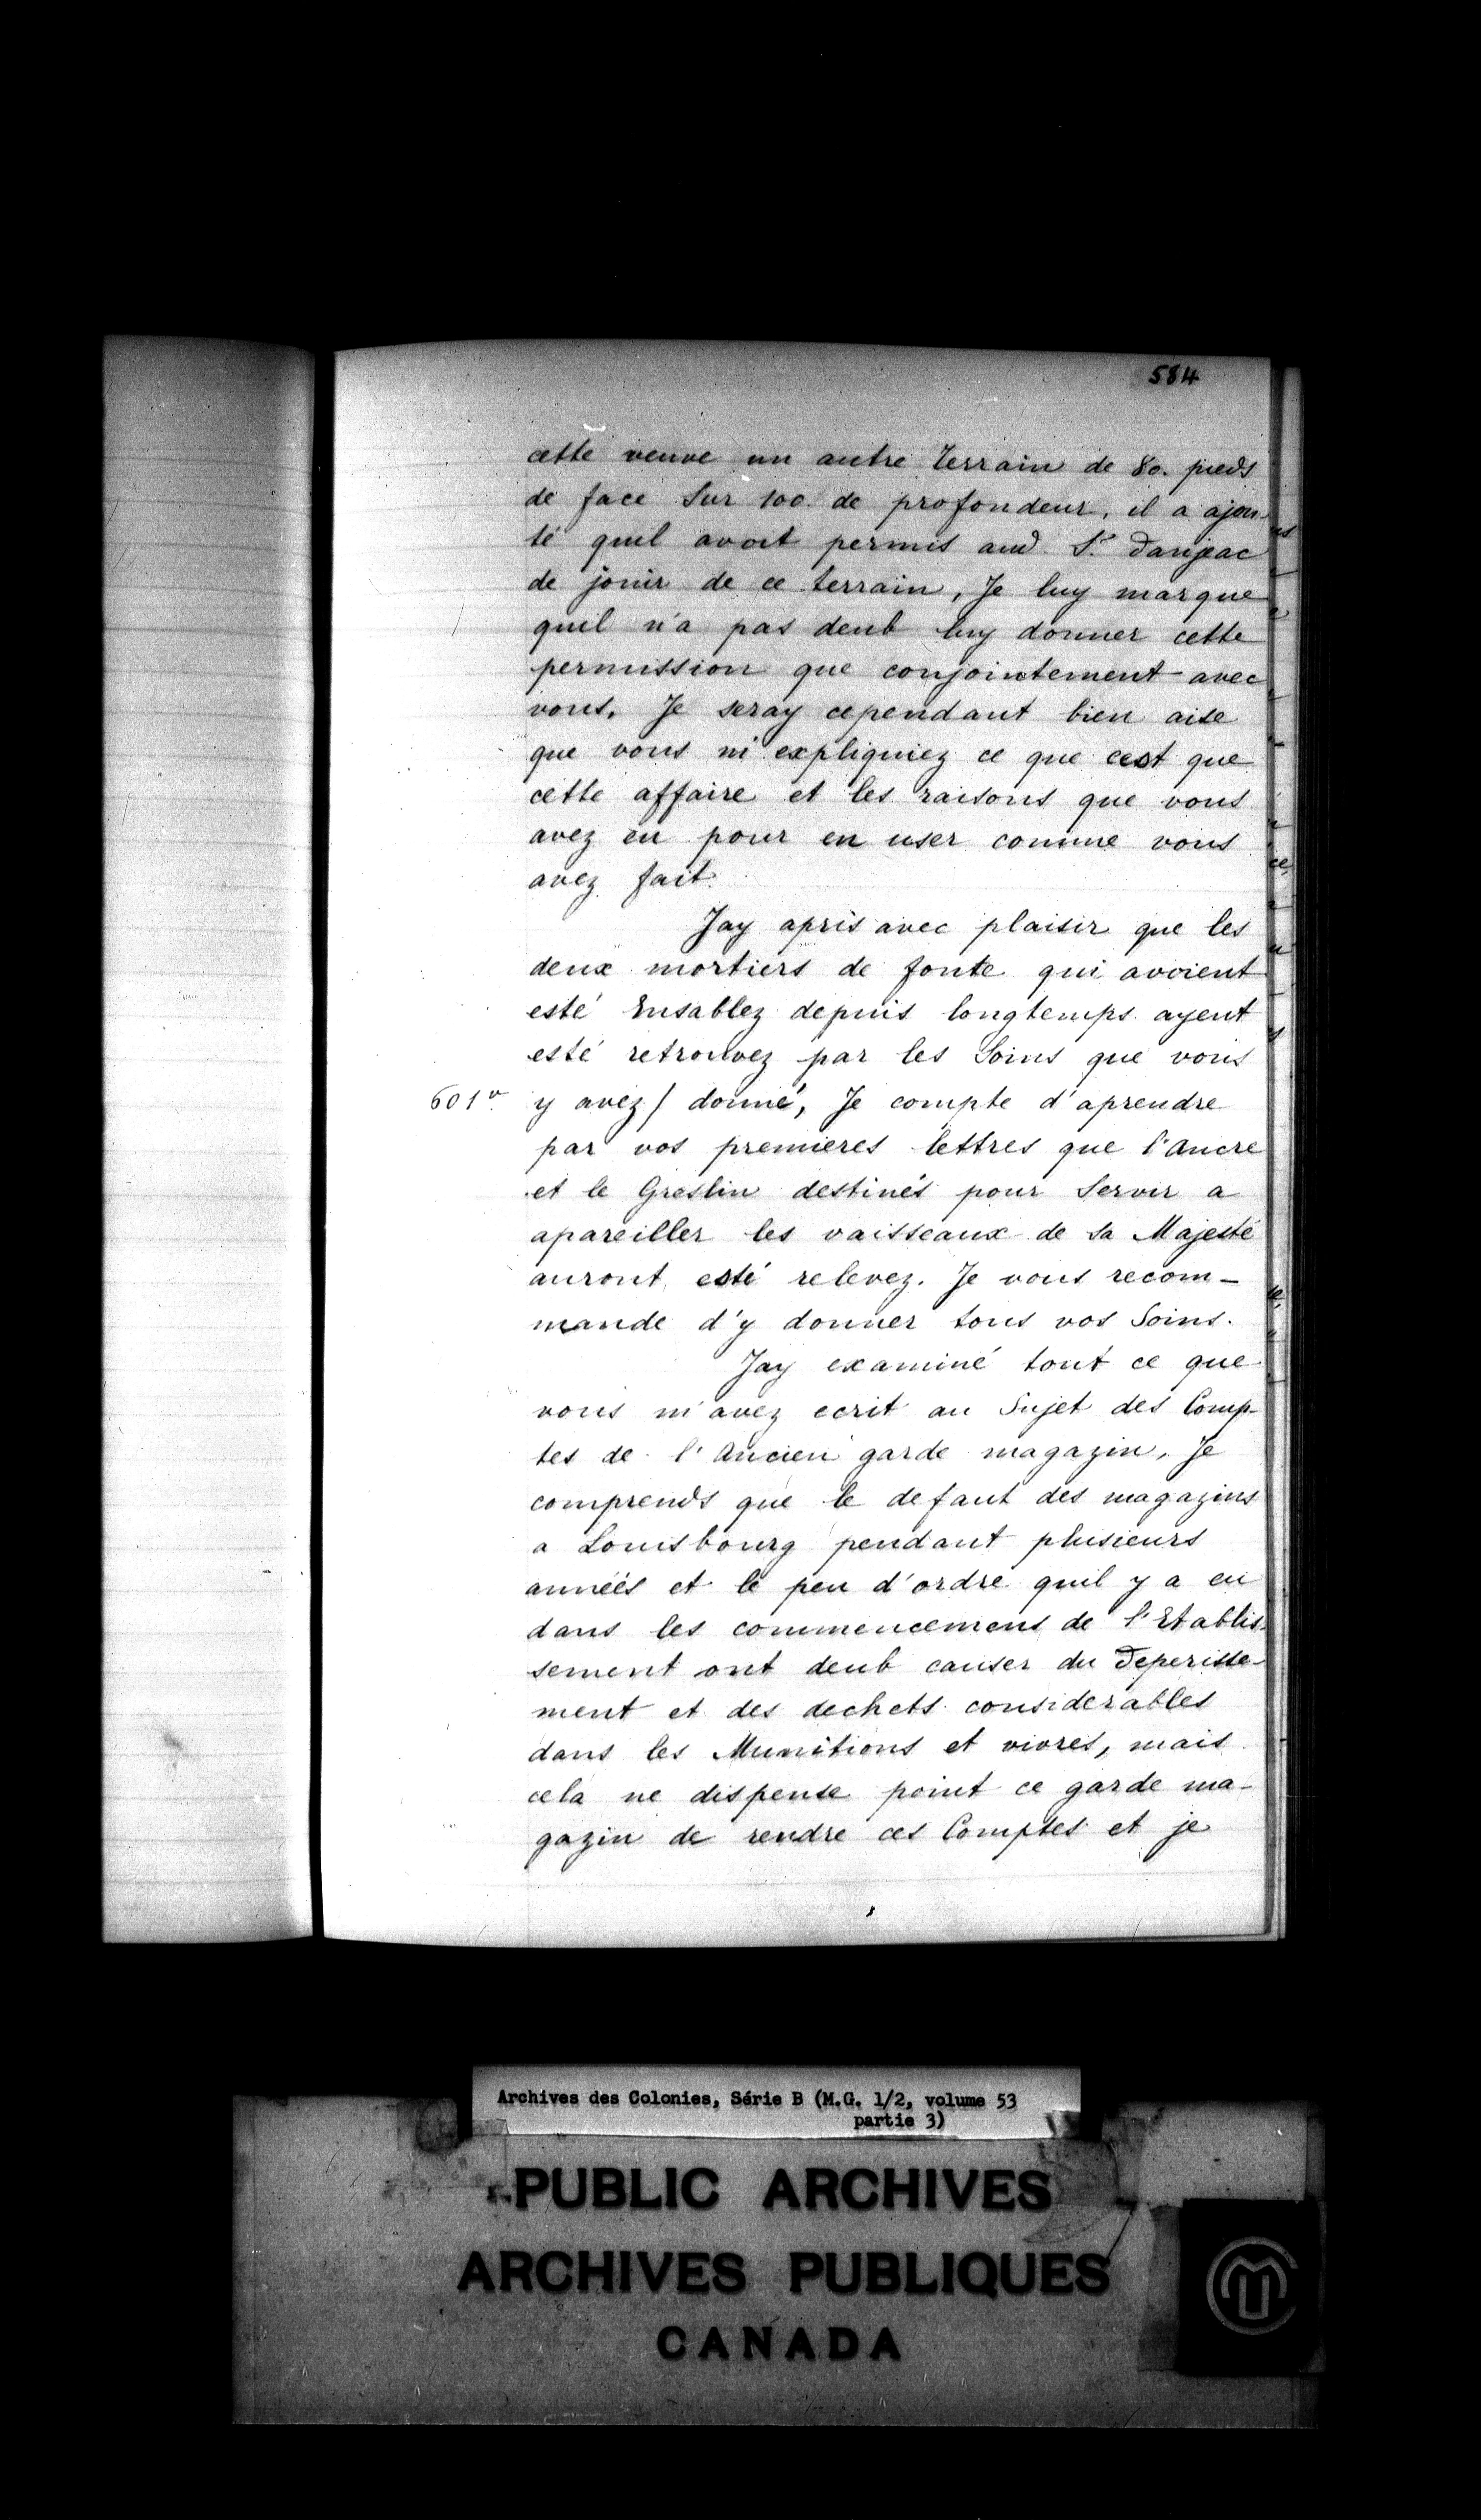 584
cette veuve un autre terrain de 80. pieds
de face Sur 100. de profondeur, il a ajou-
té quil avoit permis aud. Sr. Danjeac
de jouir de ce terrain, Je luy marque
quil n'a pas deub luy donner cette
permission que conjointement avec
vous. Je seray cependant bien aise
que vous m'expliquiez ce que cest que
cette affaire et les raisons que vous
avez eu pour en user comme vous
avez fait.
Jay apris avec plaisir que les
deux mortiers de fonte qui avoient
esté Ensablez depuis longtemps ayent
esté retrouvez par les Soins que vous
601v. y avez/ donné, Je compte d'aprendre
par vos premieres lettres que l'Ancre
et le Greslin destinés pour Servir a
apareiller les vaisseaux de Sa Majesté
auront esté relevez. Je vous recom-
mande d'y donner tous vos Soins.
Jay examiné tout ce que
vous m'avez ecrit au Sujet des Comp-
tes de l'Ancien garde magazin, Je
comprends que le defaut des magazins
a Louisbourg pendant plusieurs
années et le peu d'ordre quil y a eu
dans les commencemens de l'Etablis-
sement ont deub causer du Deperisse-
ment et des dechets considerables
dans les Munitions et vivres, mais
cela ne dispense point ce garde ma-
gazin de rendre ces Comptes et je
Archives des Colonies, Série B (M.G. 1/2, volume 53
partie 3)
PUBLIC ARCHIVES
ARCHIVES PUBLIQUES
CANADA